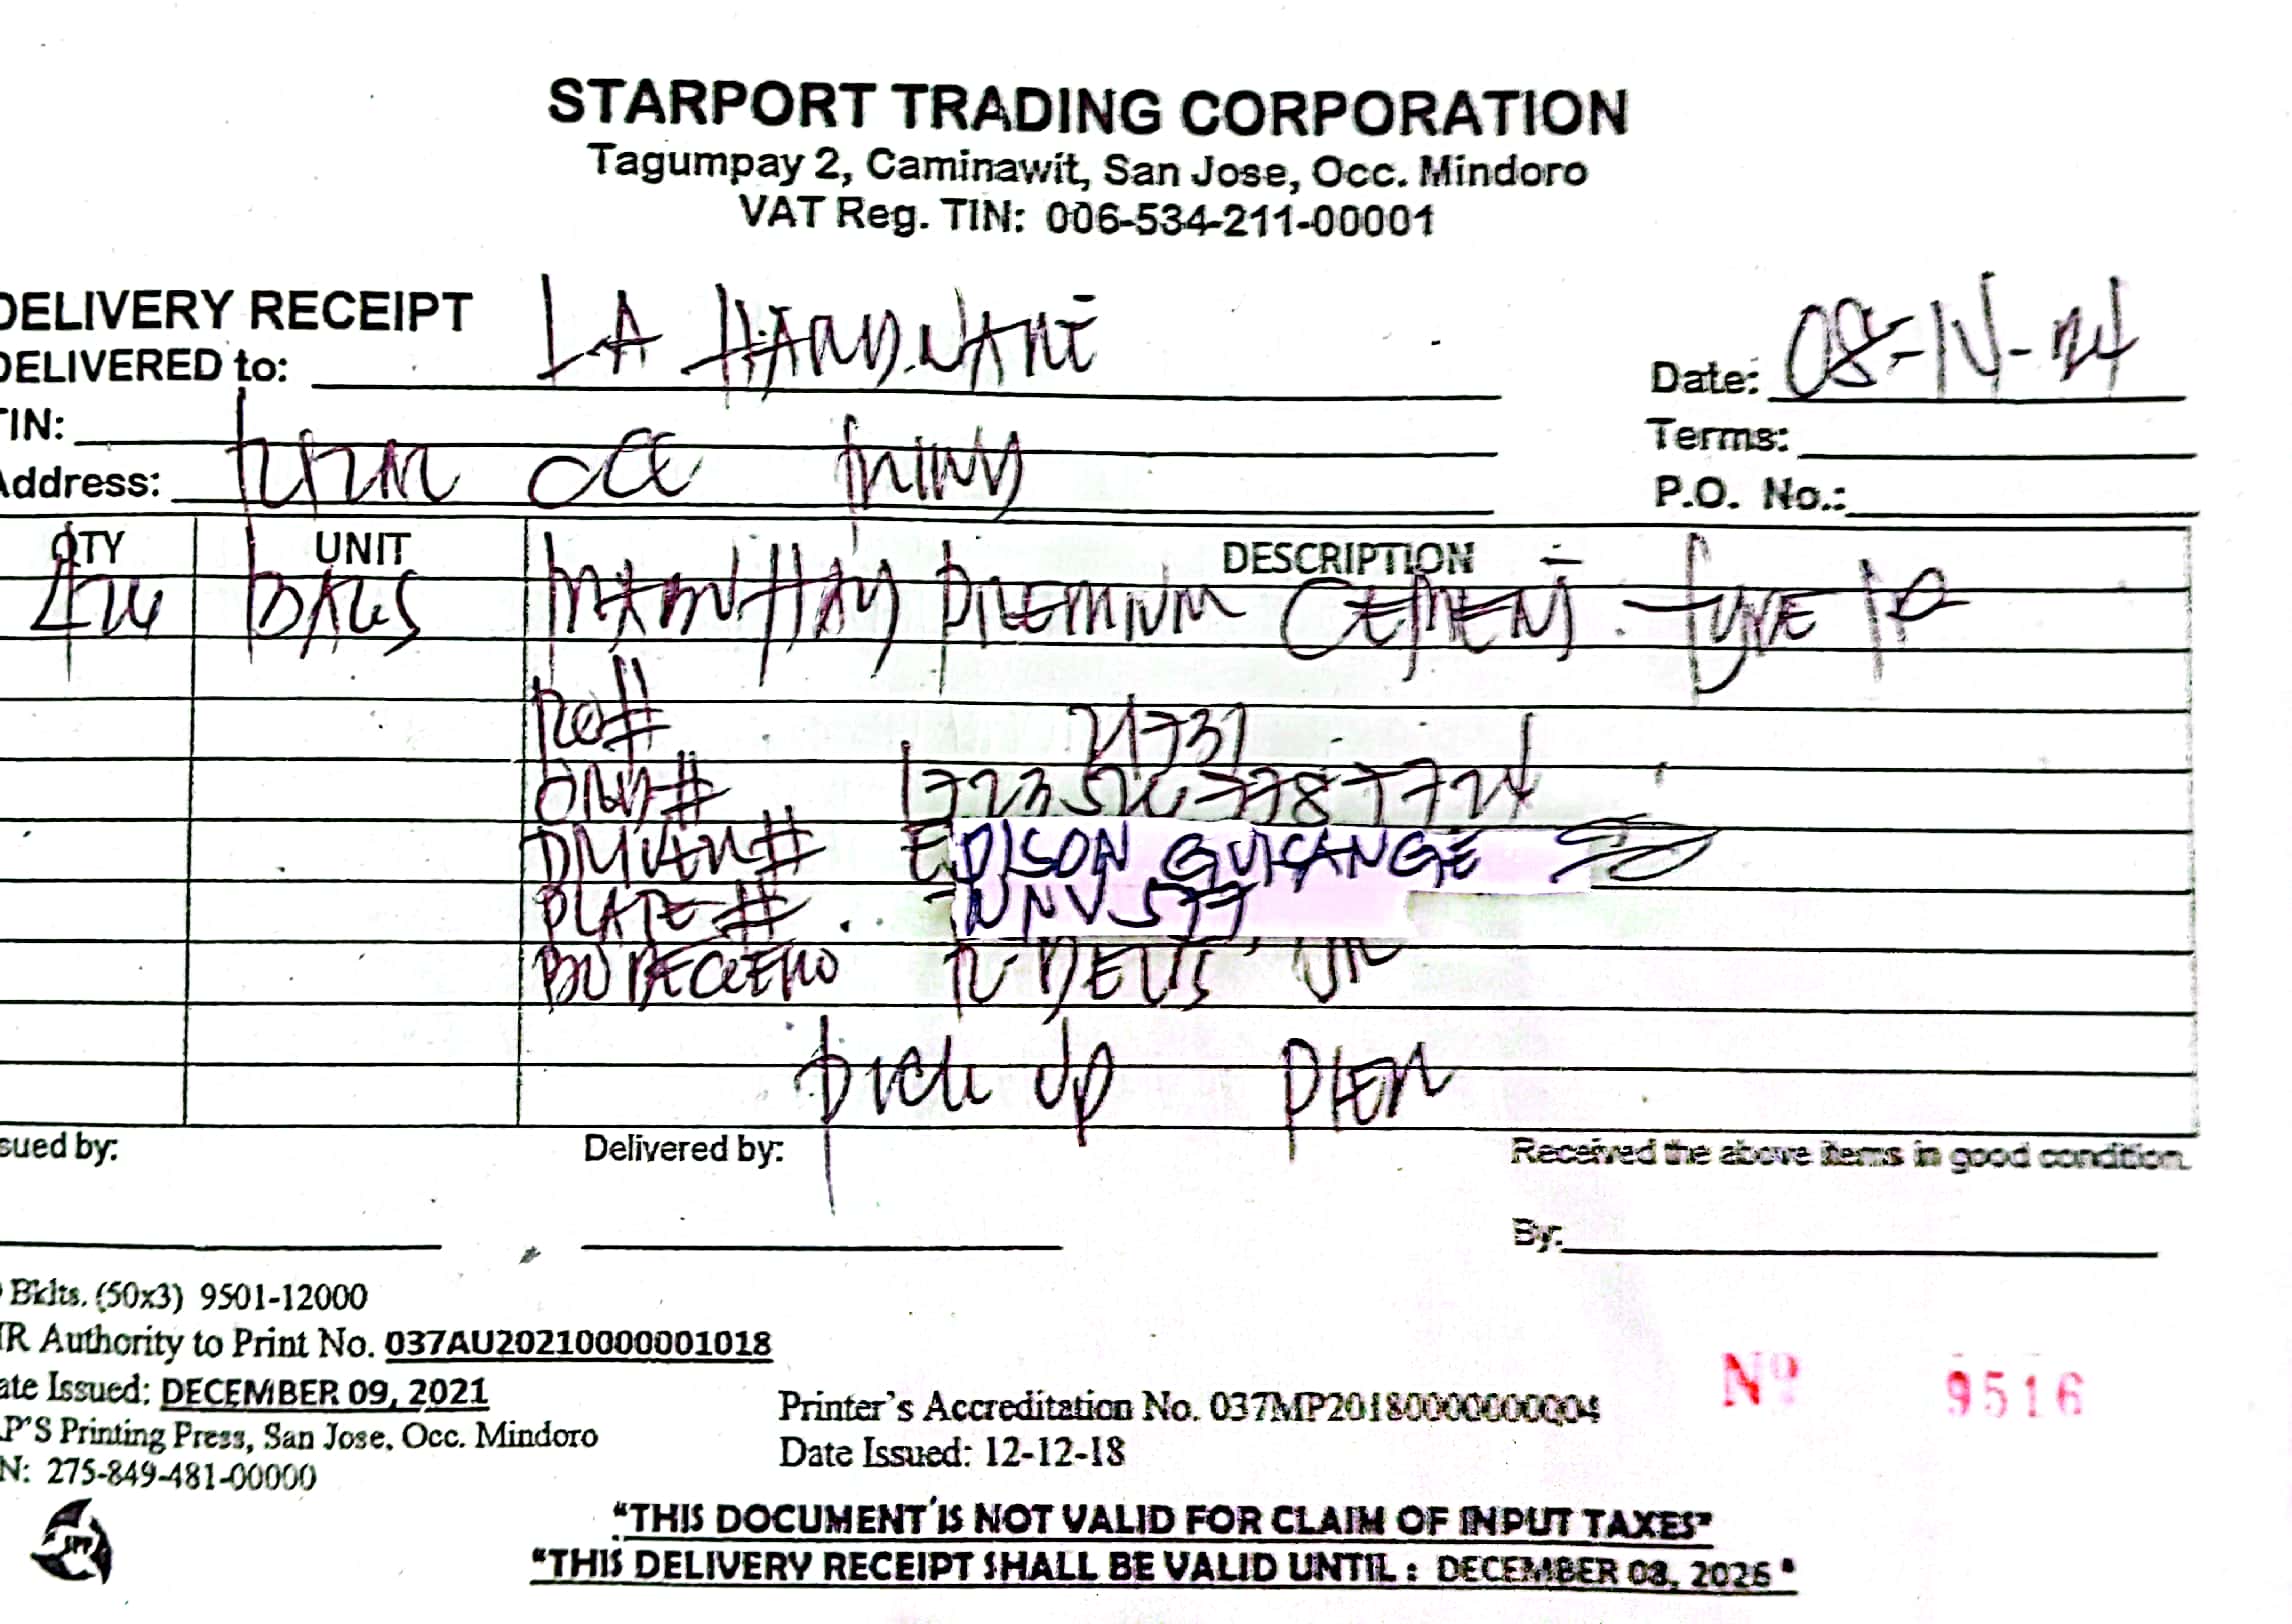 STARPORT TRADING CORPORATION
Tagumpay 2, Caminawit, San Jose, Occ. Mindoro
VAT Reg. TIN: 006-534-211-00001
DELIVERY RECEIPT
DELIVERED to: LA HARDWARE
Date: 08-14-24
TIN:
Terms:
Address: OCC MIND
P.O. No.:
QTY UNIT DESCRIPTION
BAGS PREMIUM CEMENT TYPE 1P
PO# 21731
EDISON GUICANGE
PLATE # NNV577
PICK UP PIER
sued by:
Delivered by:
Received the above items in good condition.
By:
Bklts. (50x3) 9501-12000
IR Authority to Print No. 037AU20210000001018
ate Issued: DECEMBER 09, 2021
P'S Printing Press, San Jose, Occ. Mindoro
N: 275-849-481-00000
Printer's Accreditation No. 037MP20180000000004
Date Issued: 12-12-18
Nº 9516
"THIS DOCUMENT IS NOT VALID FOR CLAIM OF INPUT TAXES"
"THIS DELIVERY RECEIPT SHALL BE VALID UNTIL : DECEMBER 08, 2026"